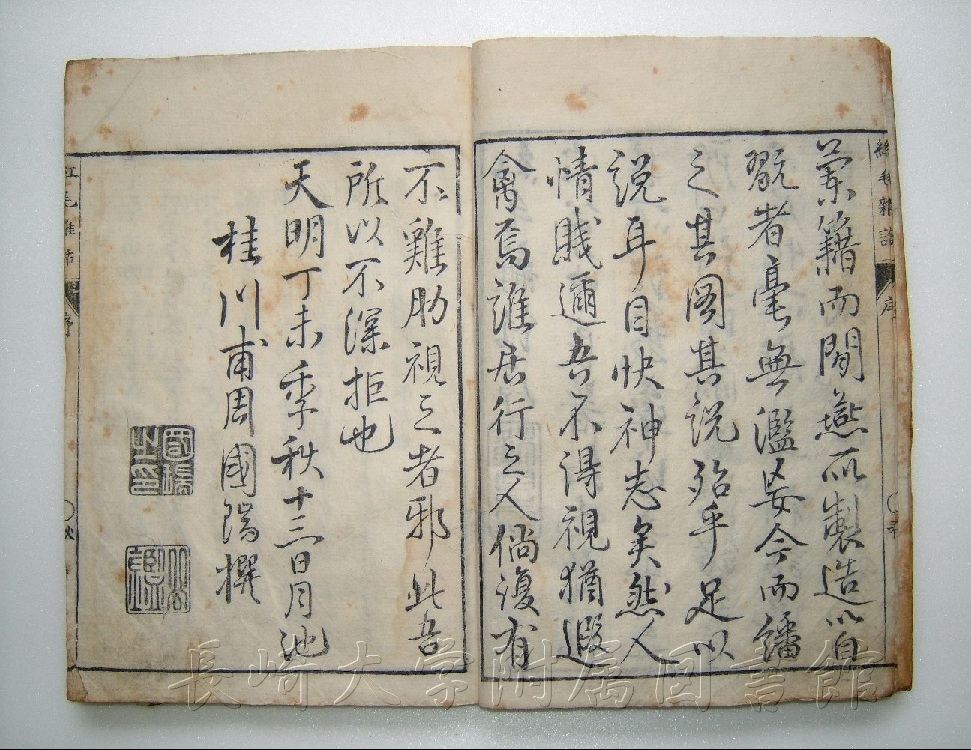 蘭籍而間燕所製造以自
翫者毫無濫妄今而繙
之其図其説殆乎足以
説耳目快神志矣然人
情賤邇吾不得視猶遐
禽焉誰居行之人倘復有
不雞肋視之者邪此吾
所以不深拒也
天明丁未季秋十三日月池
桂川甫周國瑞撰
國瑞之印
紅毛雜話
序
長崎大学附属図書館